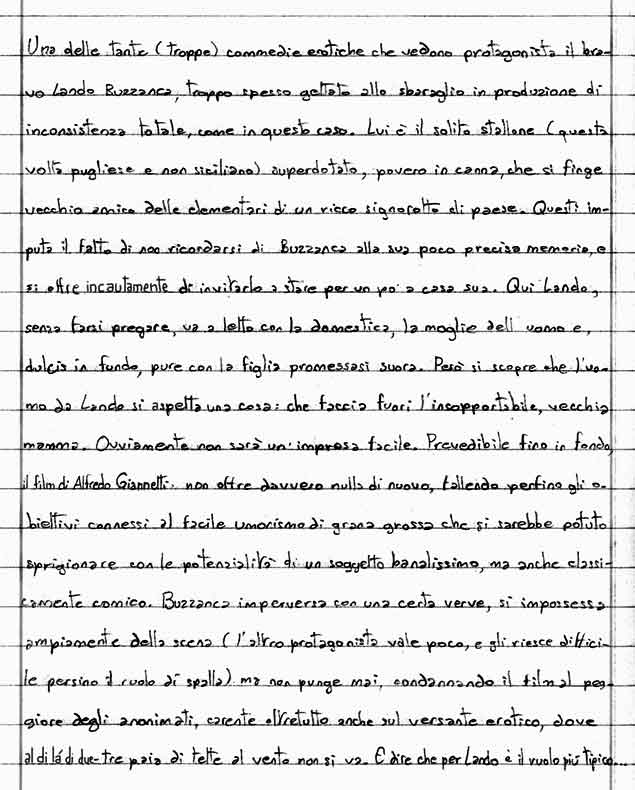 Una delle tante (troppe) commedie erotiche che vedono protagonista il bra-
vo Lando Buzzanca, troppo spesso gettato allo sbaraglio in produzione di
inconsistenza totale, come in questo caso. Lui è il solito stallone (questa
volta pugliese e non siciliano) superdotato, povero in canna, che si finge
vecchio amico delle elementari di un ricco signorotto di paese. Questi im-
puta il fatto di non ricordarsi di Buzzanca alla sua poco precisa memoria, e
si offre incautamente di invitarlo a stare per un po' a casa sua. Qui Lando,
senza farsi pregare, va a letto con la domestica, la moglie dell' uomo e,
dulcis in fundo, pure con la figlia promessasi suora. Però si scopre che l'uo-
mo da Lando si aspetta una cosa: che faccia fuori l'insopportabile, vecchia
mamma. Ovviamente non sarà un' impresa facile. Prevedibile fino in fondo,
il film di Alfredo Giannetti, non offre davvero nulla di nuovo, fallendo perfino gli o-
biettivi connessi al facile umorismo di grana grossa che si sarebbe potuto
sprigionare con le potenzialità di un soggetto banalissimo, ma anche classi-
camente comico. Buzzanca imperversa con una certa verve, si impossessa
ampiamente della scena (l'altro protagonista vale poco, e gli riesce diffici-
le persino il ruolo di spalla) ma non punge mai, condannando il film al peg-
giore degli anonimati, carente oltretutto anche sul versante erotico, dove
al di lá di due-tre paia di tette al vento non si va. E dire che per Lando è il ruolo piú tipico...